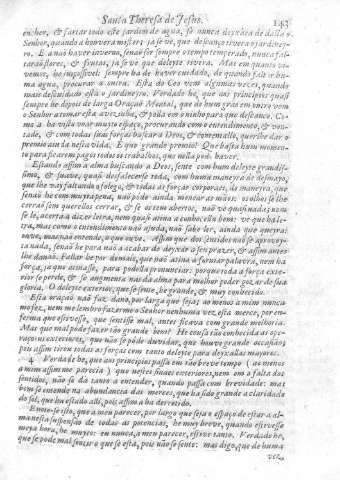 Santa Theresa de Jesus.
encher, & fartar todo este jardim de agua, se nunca deyxára de dalla o
Senhor, quando a houvera mister: ja se vè, que descanço tivera o jardiney-
ro. E a naõ haver inverno, senaõ ser sempre o tempo temperado, nunca fal-
taraõ flores, & frutas, ja se vè que deleyte tivera. Mas em quanto vi-
vemos, he impossivel: sempre ha de haver cuidado, de quando faltar huma
agua, procurar a outra. Esta do Ceo vem algumas vezes, quando
mais descuidado está o jardineyro. Verdade he, que aos principios quasi
sempre he depois de larga Oraçaõ Mental, que de hum grao em outro vem
o Senhor a tomar esta avezinha, & polla em o ninho para que descance. Co-
mo a ha visto voar muyto espaço, procurando com o entendimento, & von-
tade, & com todas suas forças buscar a Deos, & contentallo, querlhe dar o
premio ainda nesta vida. E que grande premio! Que basta hum momen-
to para ficarem pagos todos os trabalhos, que nella pode haver.
Estando assim a alma buscando a Deos, sente com hum deleyte grandis-
simo, & suave, quasi desfalecerse toda, com huma maneyra de desmayo,
que lhe vay faltando o folego, & todas as forças corporaes, de maneyra, que
senaõ he com muyta pena, naõ póde ainda menear as mãos: os olhos se lhe
cerraõ sem querellos cerrar, & se os tem abertos, naõ vè quasi nada; nem
se le, acerta a dizer letra, nem quasi atina a conhecella bem: vè que ha le-
tra, mas como o entendimento naõ ajuda, naõ sabe ler, ainda que queyra:
ouve, mas naõ entende, o que ouve. Assim que dos sentidos naõ se aprovey-
ta nada, senaõ he para naõ a acabar de deyxar a seu prazer, & assim antes
lhe danaõ. Fallar he por demais, que naõ atina a formar palavra, nem ha
força, ja que atinasse, para podella pronunciar: porque toda a força exte-
rior se perde, & se augmenta nas da alma para melhor poder gozar de sua
gloria. O deleyte exterior, que se sente, he grande, & muy conhecido.
Esta oraçaõ naõ faz dano, por larga que seja; ao menos a mim nunca
mo fez, nem me lembro fazerme o Senhor nenhuma vez, esta merce, por en-
ferma que estivesse, que sentisse mal, antes ficava com grande melhoria.
Mas que mal póde fazer taõ grande bem? He cousa taõ conhecida as ope-
raçoens exteriores, que naõ se póde duvidar, que houve grande occasiaõ;
pois assim tirou todas as forças com tanto deleyte para deyxallas mayores.
4 Verdade he, que aos principios passa em taõ breve tempo ( ao menos
a mim assim me parecia ) que nestes sinaes exteriores, nem em a falta dos
sentidos, naõ se dá tanto a entender, quando passa com brevidade: mas
bem se entende na abundancia das merces, que ha sido grande a claridade
do Sol, que ha estado alli, pois assim a ha derretido.
E note-se isto, que a meu parecer, por largo que seja o espaço de estar a al-
ma nesta suspensaõ de todas as potencias, he muy breve, quando estivesse
meya hora, he muyto: eu nunca, a meu parecer, estive tanto. Verdade he,
que se póde mal sentir o que se está, pois naõ se sente: mas digo, que de huma
vez,